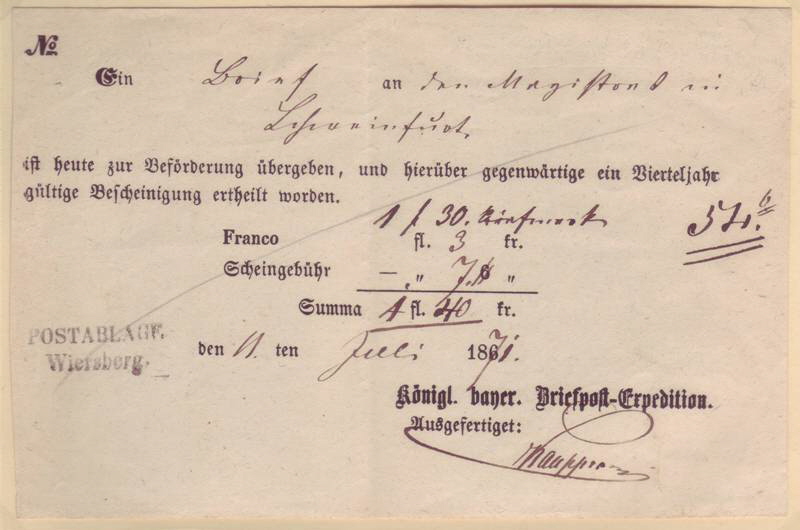 No
Ein Brief an den Magistrat in
Schweinfurt
ist heute zur Beförderung übergeben, und hierüber gegenwärtige ein Vierteljahr
gültige Bescheinigung ertheilt worden.
1 f 30.
Franco fl. 3 kr.
Scheingebühr — „ 7. „
Summa 1 fl. 40 kr.
POSTABLAGE
Wiersberg.
den 11. ten Juli 1871.
Königl. bayer. Briefpost-Expedition.
Ausgefertiget: